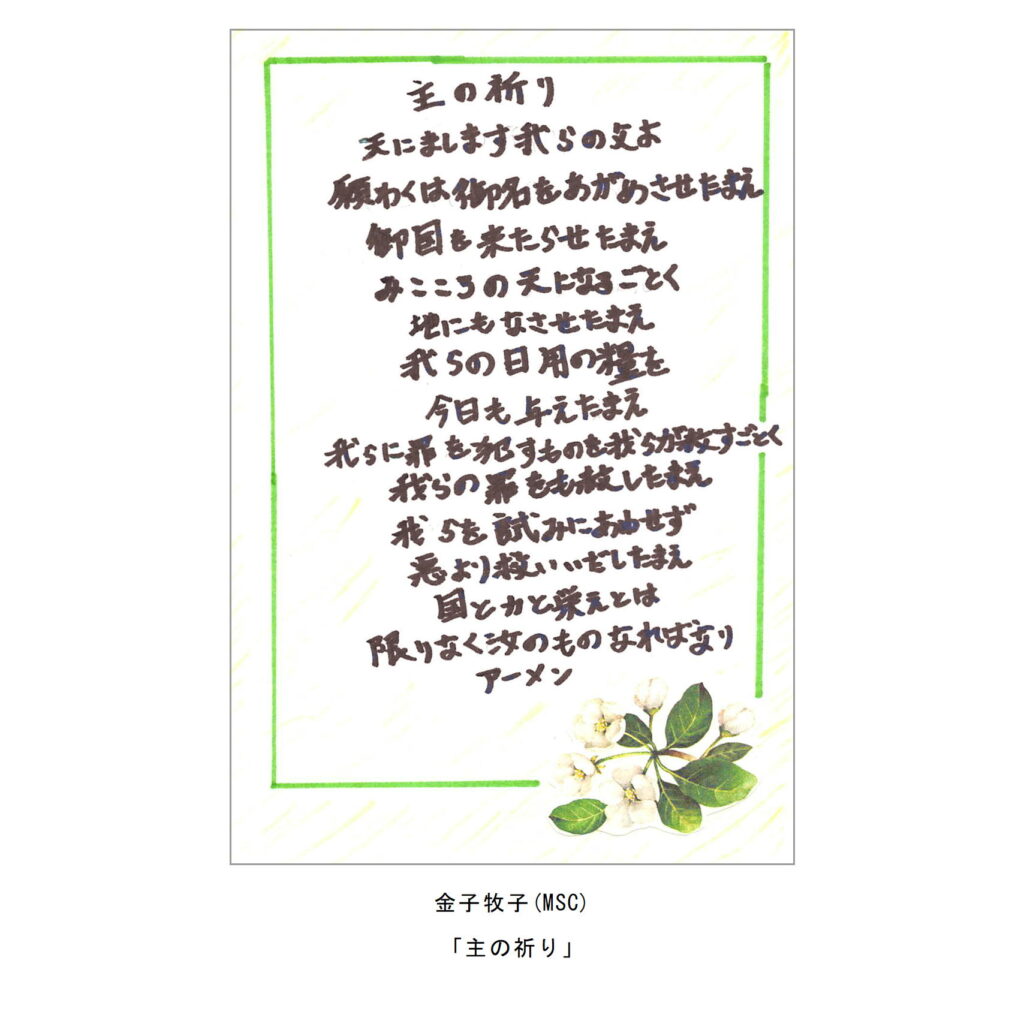 主の祈り
天にまします我らの父よ
願わくは御名をあがめさせたまえ
御国を来たらせたまえ
みこころの天になるごとく
地にもなさせたまえ
我らの日用の糧を
今日も与えたまえ
我らに罪を犯すものを我らが赦すごとく
我らの罪をも赦したまえ
我らを試みにあわせず
悪より救いいだしたまえ
国と力と栄えとは
限りなく汝のものなればなり
アーメン
金子牧子(MSC)
「主の祈り」